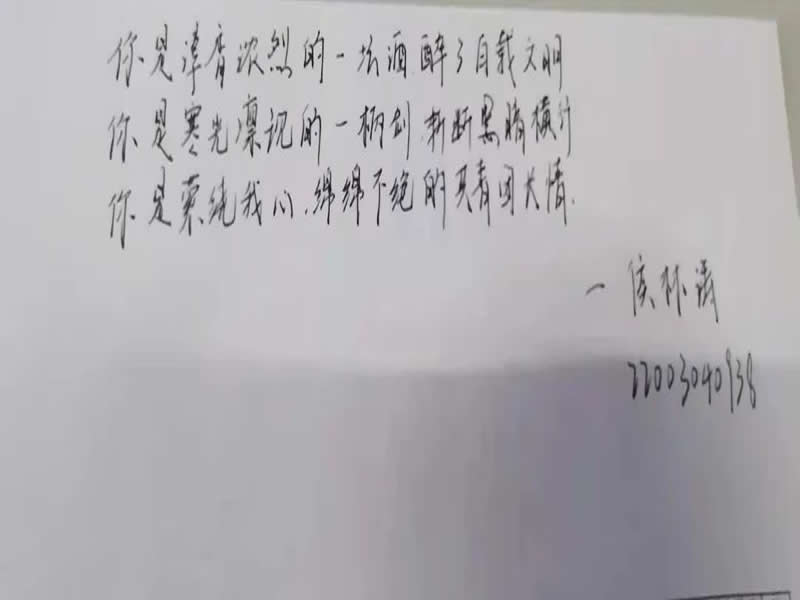 你是清香浓烈的一坛酒,醉了百载文明
你是寒光凛冽的一柄剑,斩断黑暗横行
你是萦绕我心,绵绵不绝的共青团长情.
一 侯林涛
22003040938